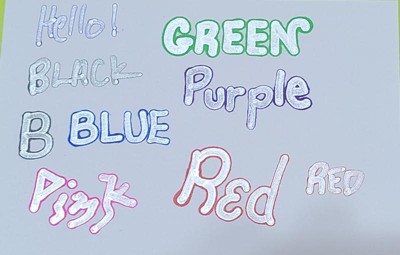 Hello!
GREEN
BLACK
Purple
B BLUE
Pink
REd
RED